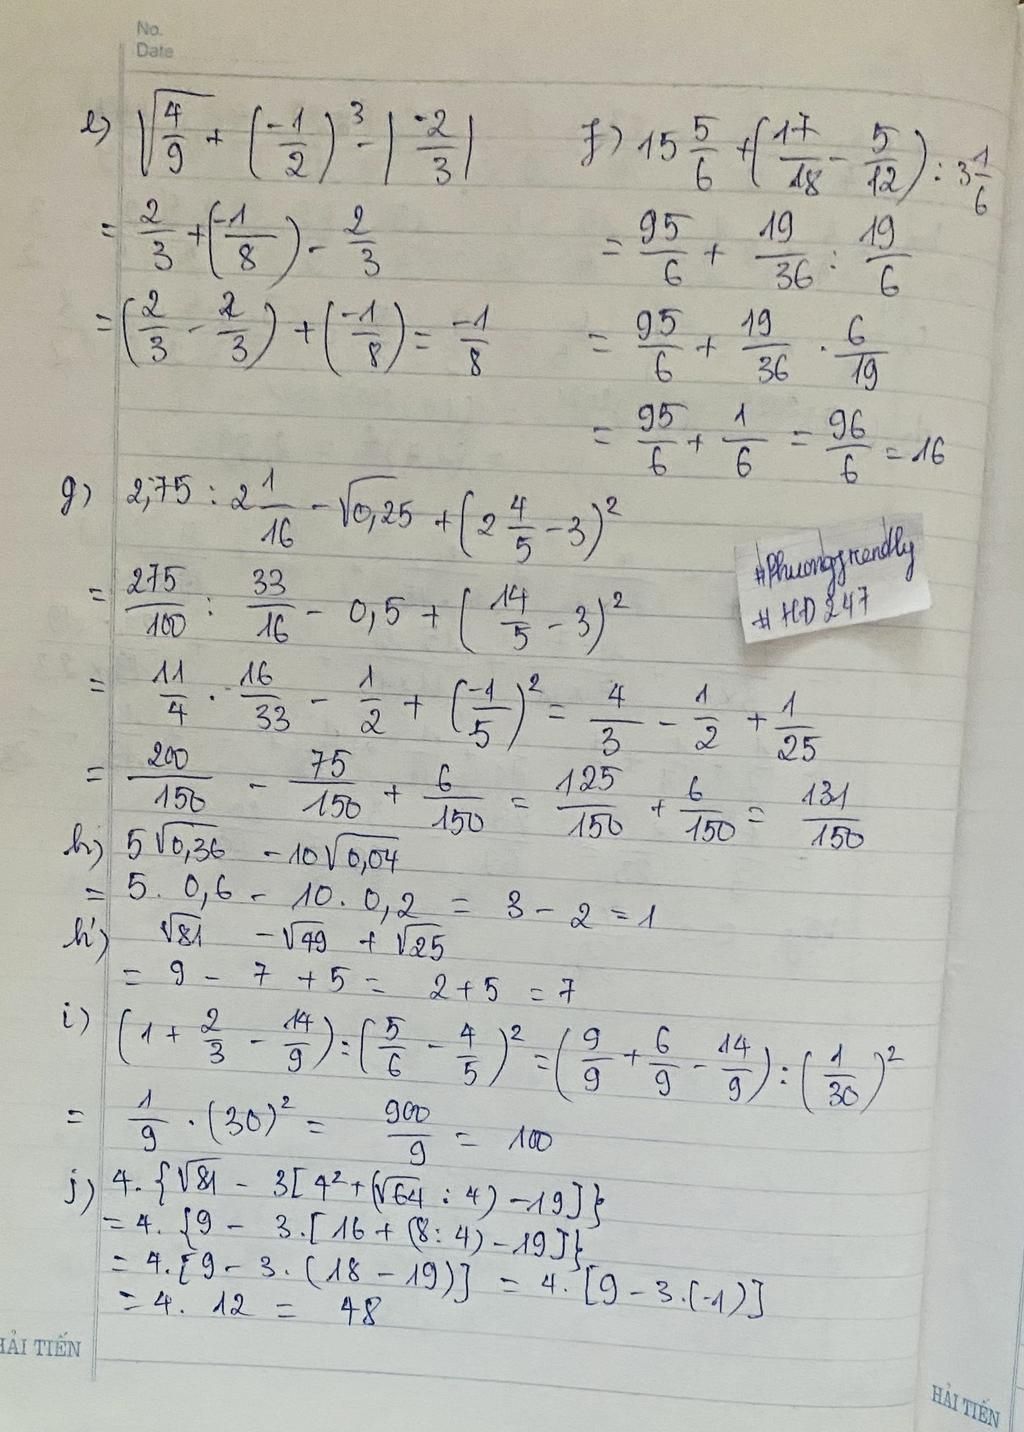 No.
Date
e) √(4/9) + (-1/2)³ - |-2/3|
= 2/3 + (-1/8) - 2/3
= (2/3 - 2/3) + (-1/8) = -1/8
f) 15 5/6 + (17/18 - 5/12) : 3 1/6
= 95/6 + 19/36 : 19/6
= 95/6 + 19/36 . 6/19
= 95/6 + 1/6 = 96/6 = 16
g) 2,75 : 2 1/16 - √0,25 + (2 4/5 - 3)²
= 275/100 : 33/16 - 0,5 + (14/5 - 3)²
= 11/4 . 16/33 - 1/2 + (-1/5)² = 4/3 - 1/2 + 1/25
= 200/150 - 75/150 + 6/150 = 125/150 + 6/150 = 131/150
h) 5√0,36 - 10√0,04
= 5. 0,6 - 10. 0,2 = 3 - 2 = 1
h') √81 - √49 + √25
= 9 - 7 + 5 = 2 + 5 = 7
i) (1 + 2/3 - 14/9) : (5/6 - 4/5)² = (9/9 + 6/9 - 14/9) : (1/30)²
= 1/9 . (30)² = 900/9 = 100
j) 4. {√81 - 3[4² + (√64 : 4) - 19]}
= 4. {9 - 3.[16 + (8 : 4) - 19]}
= 4.[9 - 3. (18 - 19)] = 4. [9 - 3.(-1)]
= 4. 12 = 48
#Phuongfrendly
# HD 247
HẢI TIẾN
HẢI TIẾN